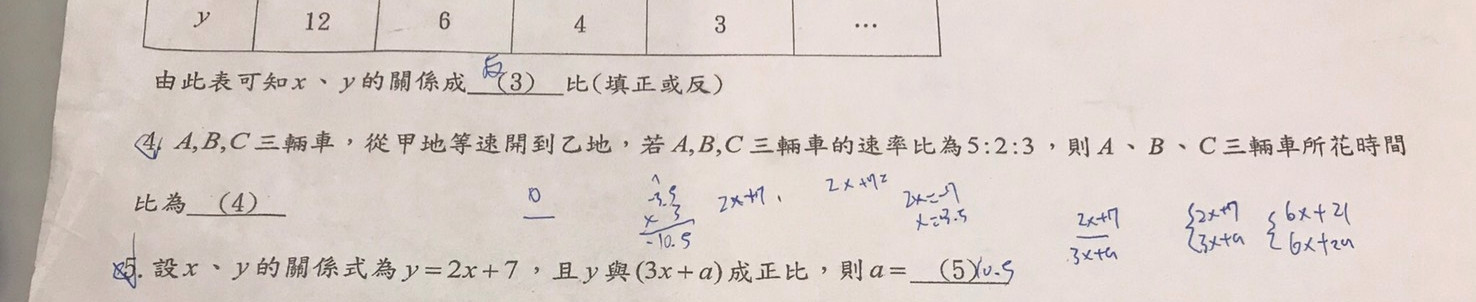 y 12 6 4 3 ...
由此表可知x、y的關係成 反(3) 比(填正或反)
4. A,B,C三輛車，從甲地等速開到乙地，若A,B,C三輛車的速率比為5:2:3，則A、B、C三輛車所花時間
比為 (4)
0
-3.5
× 3
-10.5
2x+7
2x+7=
2x=-7
x=-3.5
2x+7
3x+a
{2x+7
3x+a
{6x+21
6x+2a
5. 設x、y的關係式為y=2x+7，且y與(3x+a)成正比，則a= (5)10.5